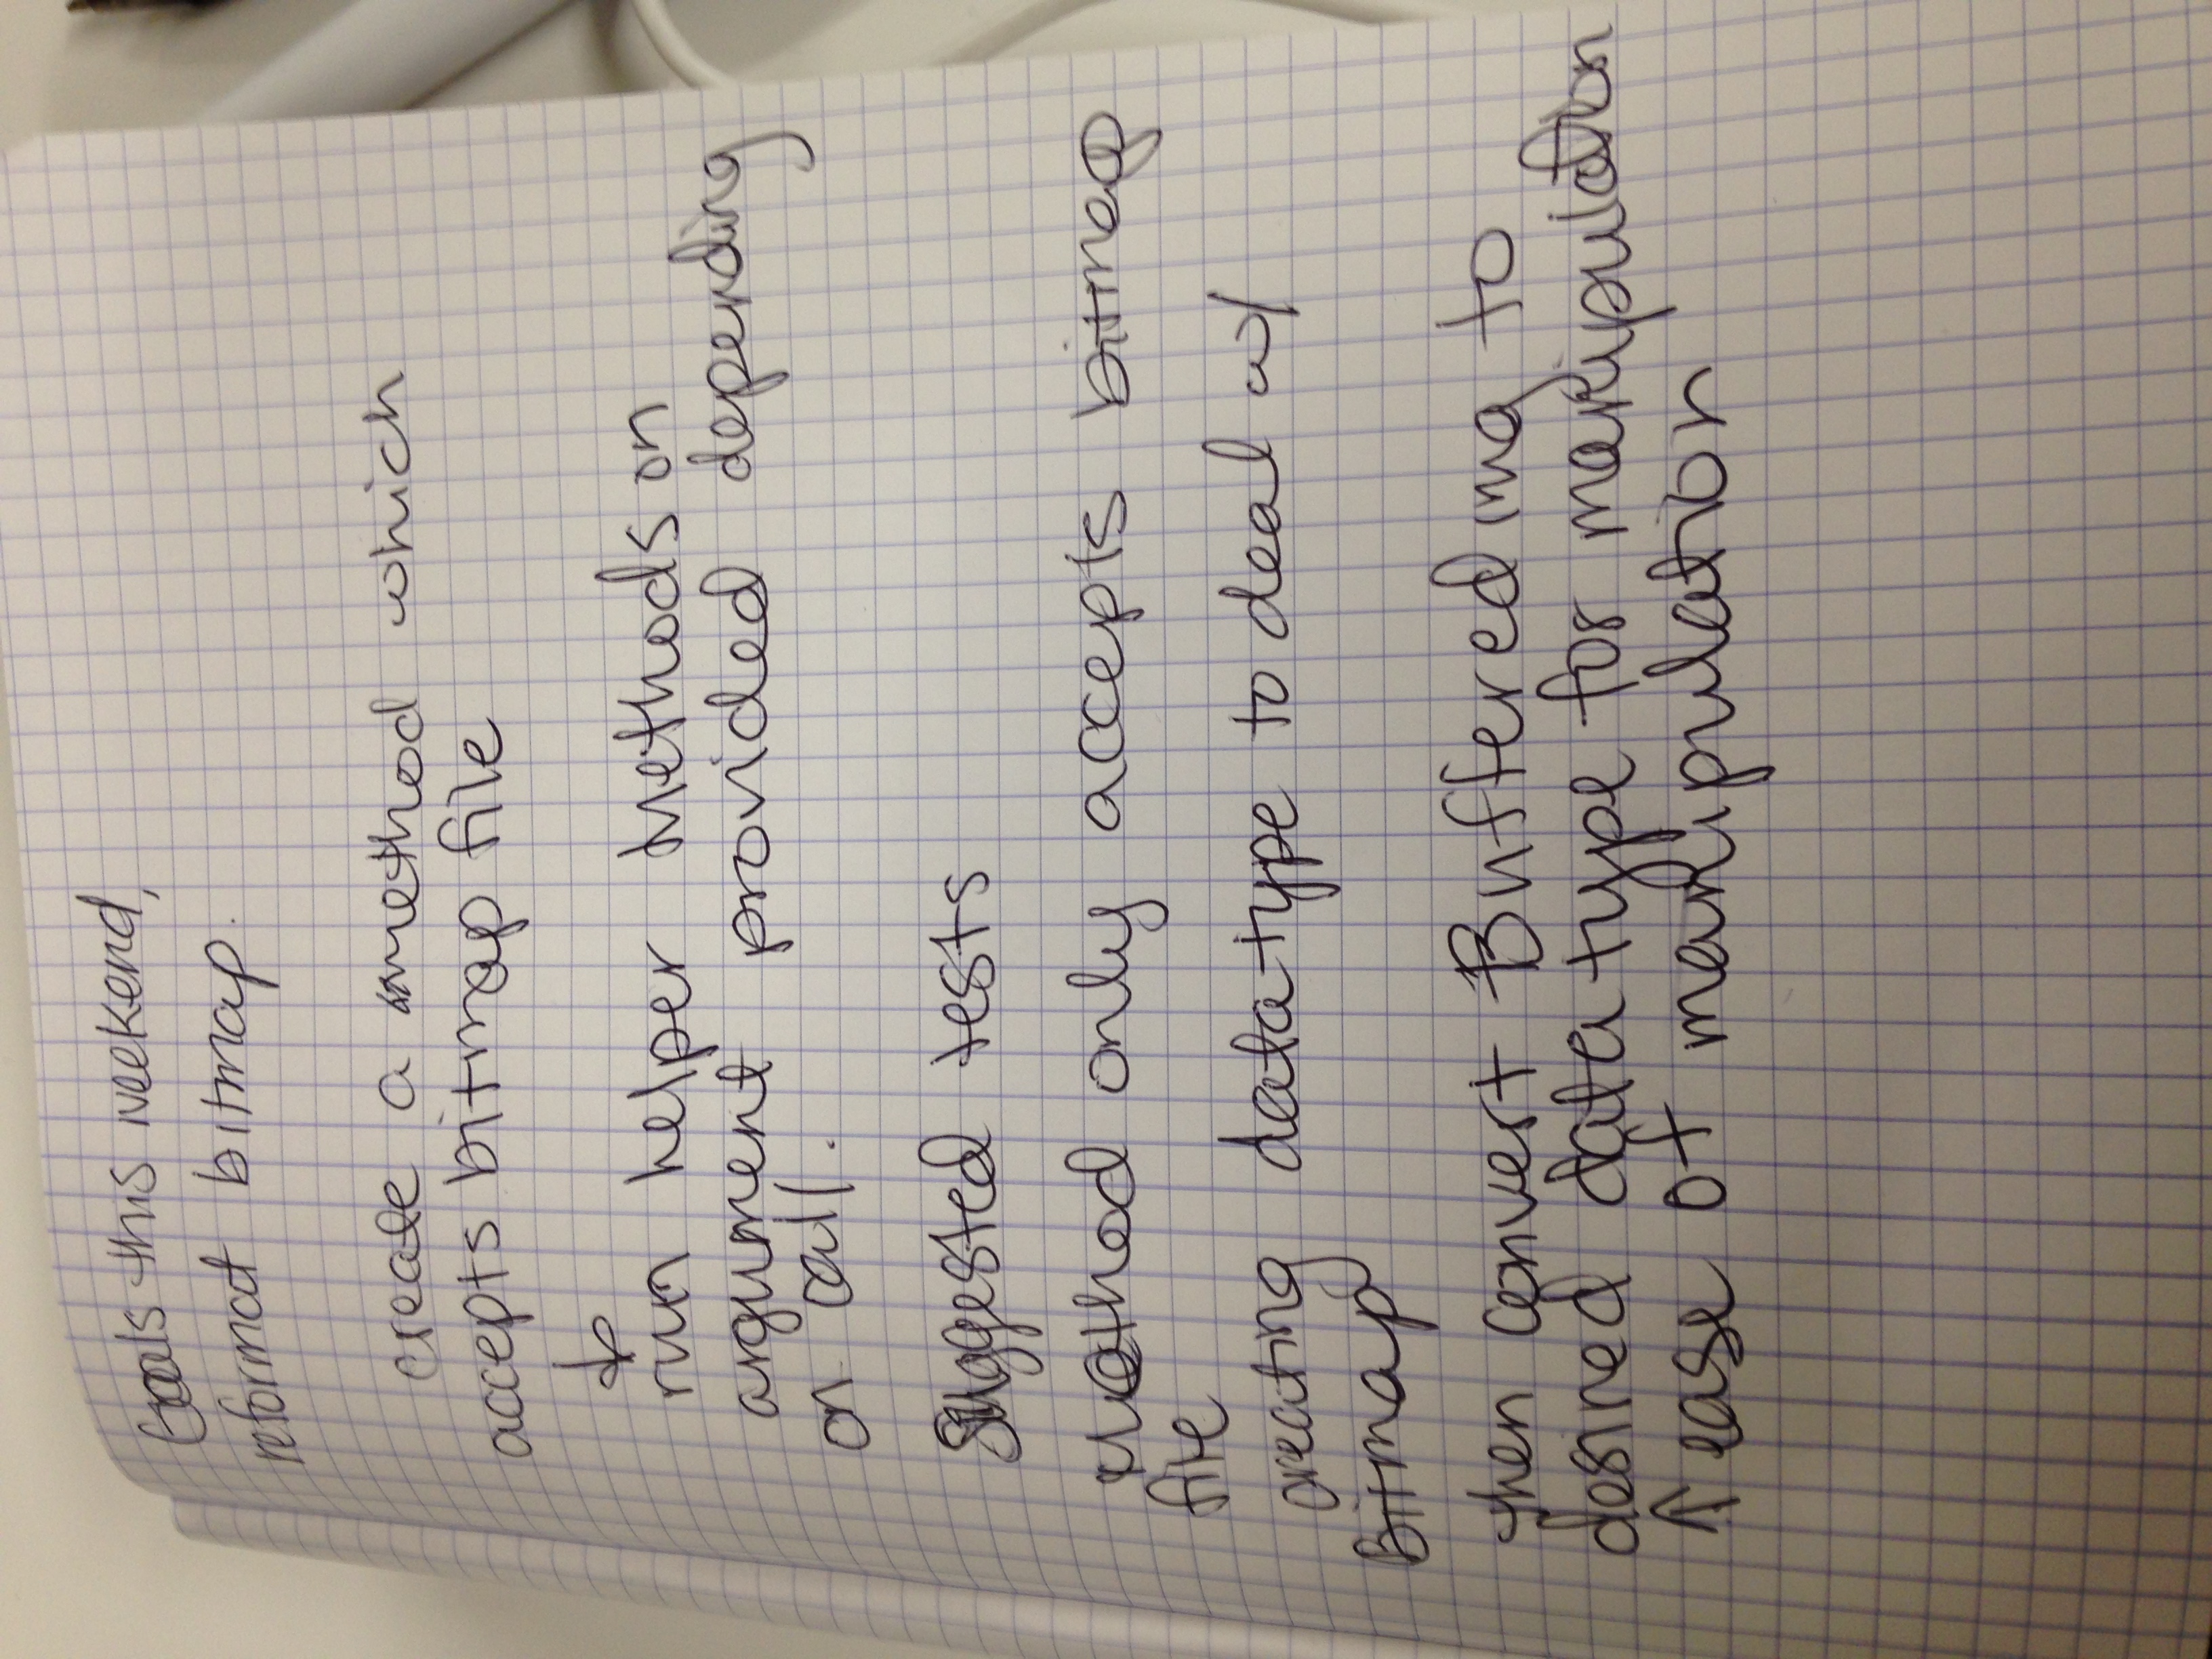 Goals this weekend,
reformat bitmap.
create a method which
accepts bitmap file
↓
run helper Methods on
argument provided depending
on call.
Suggested tests
Method only accepts bitmap
file
creating data type to deal w/
Bitmap
then convert Buffered img to
desired data type for manipulation
↑ ease of manipulation